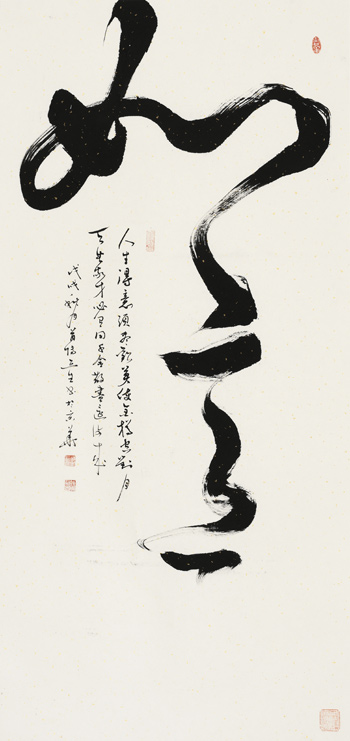 如意
人生得意須盡歡莫使金樽空對月
天生我才必有用千金散盡還復來
戊戌秋月
書於京華